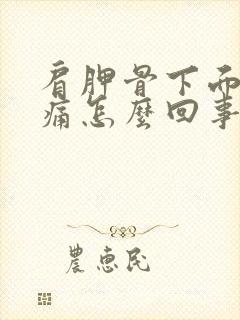 肩胛骨下面
痛怎麼回事
農惠民